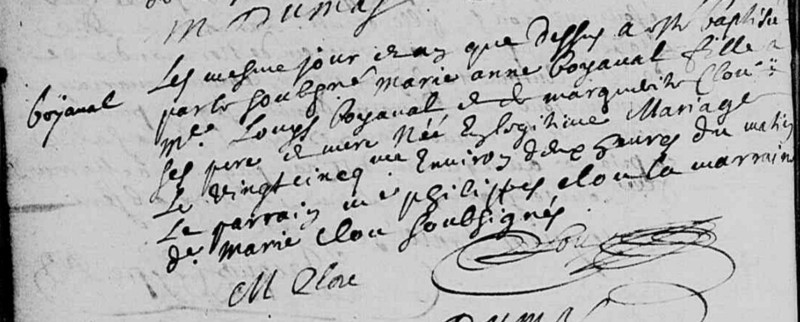 M Dumas
boyaual
Les mesme jour et an que dessus a esté baptisée
par le soubsné marie anne boyaual fille a
Me. Louys boyaual et de marguerite Clou
ses pere et mere Née En legitime Mariage
Le vingtcinqme Environ deux heures du matin
Le parrain me philippes Clou la marraine
de. marie Clou soubsignés
M Clou
Clou
Dumas